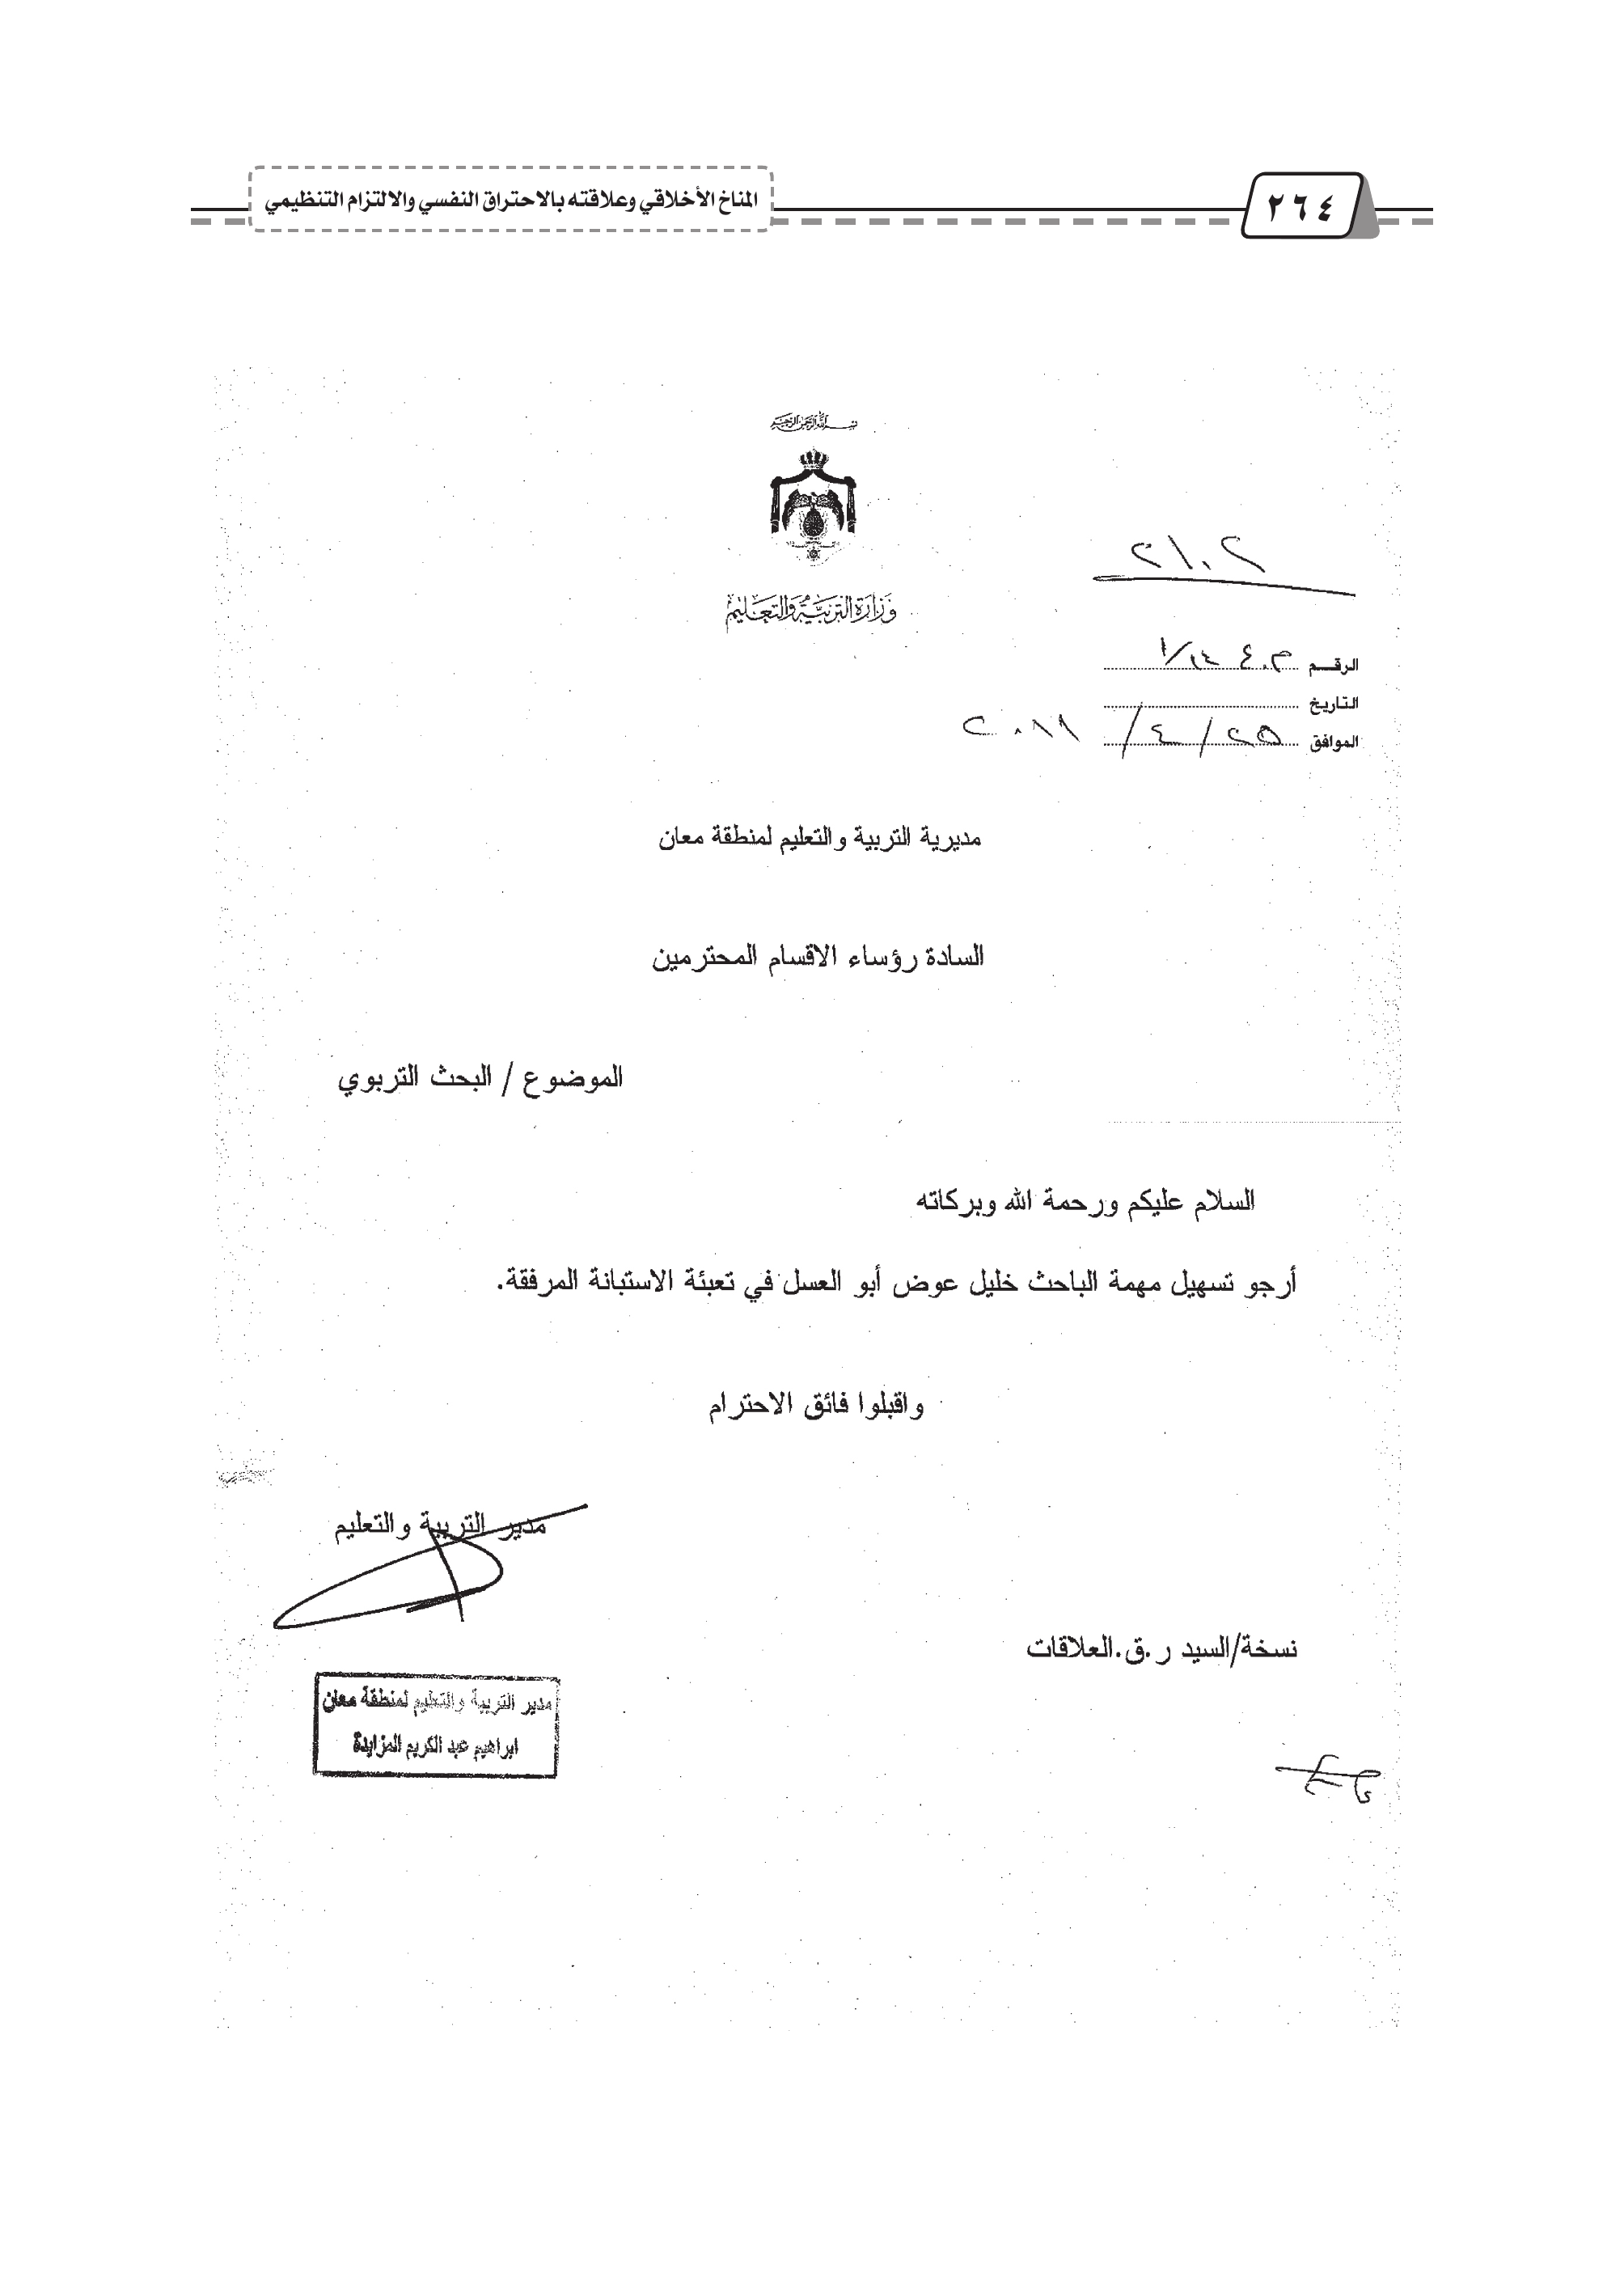 المناخ الأخلاقي وعلاقته بالاحتراق النفسي والالتزام التنظيمي
٢٦٤
بسم الله الرحمن الرحيم
وزارة التربية والتعليم
٢١٠٢
الرقم
التاريخ
الموافق ٢٥/٤/٢٠١١
مديرية التربية والتعليم لمنطقة معان
السادة رؤساء الاقسام المحترمين
الموضوع / البحث التربوي
السلام عليكم ورحمة الله وبركاته
أرجو تسهيل مهمة الباحث خليل عوض أبو العسل في تعبئة الاستبانة المرفقة.
واقبلوا فائق الاحترام
مدير التربية والتعليم
نسخة/السيد ر.ق.العلاقات
مدير التربية والتعليم لمنطقة معان
ابراهيم عبد الكريم المزايدة